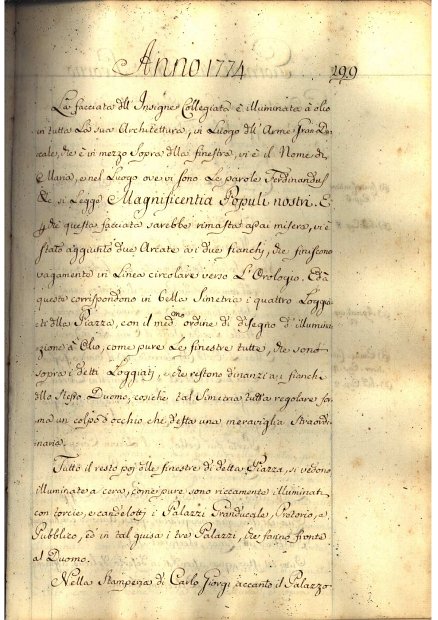 Anno 1774
299
La facciata dll' Insigne Collegiata è illuminata à olio
in tutta La sua Architettura, in Luogo dll' Arme Gran Du-
cale, che è in mezzo sopra dlla finestra, vi è il Nome di
Maria, e nel Luogo ove vi sono Le parole Ferdinandus
&c. si Legge Magnificentia Populi nostri. E
chè questa facciata sarebbe rimasta assai misera, vi è
stato aggiunto due Arcate a i due fianchi, che finiscono
vagamente in Linea circolare verso L'Orologio. Ed à
queste corrispondono in bella Simetria i quattro Loggia-
ti dlla Piazza, con il med.mo ordine di disegno d' illumi-
nazione à Olio, come pure Le finestre tutte, che sono
sopra i detti Loggiatj, e che restono dinanzi a i fianchi
dllo stesso Duomo, cosiche tal Simetria tutta regolare for-
ma un colpo d'occhio che desta una meraviglia straordi-
naria.
Tutto il resto poj dlle finestre di detta Piazza, si vedono
illuminate a cera, come pure sono riccamente illuminati
con torcie, e candelottj i Palazzi Granducale, Pretorio, e
Pubblico, ed in tal guisa i tre Palazzi, che fanno fronte
al Duomo.
Nella Stamperia di Carlo Giorgi, accanto il Palazzo